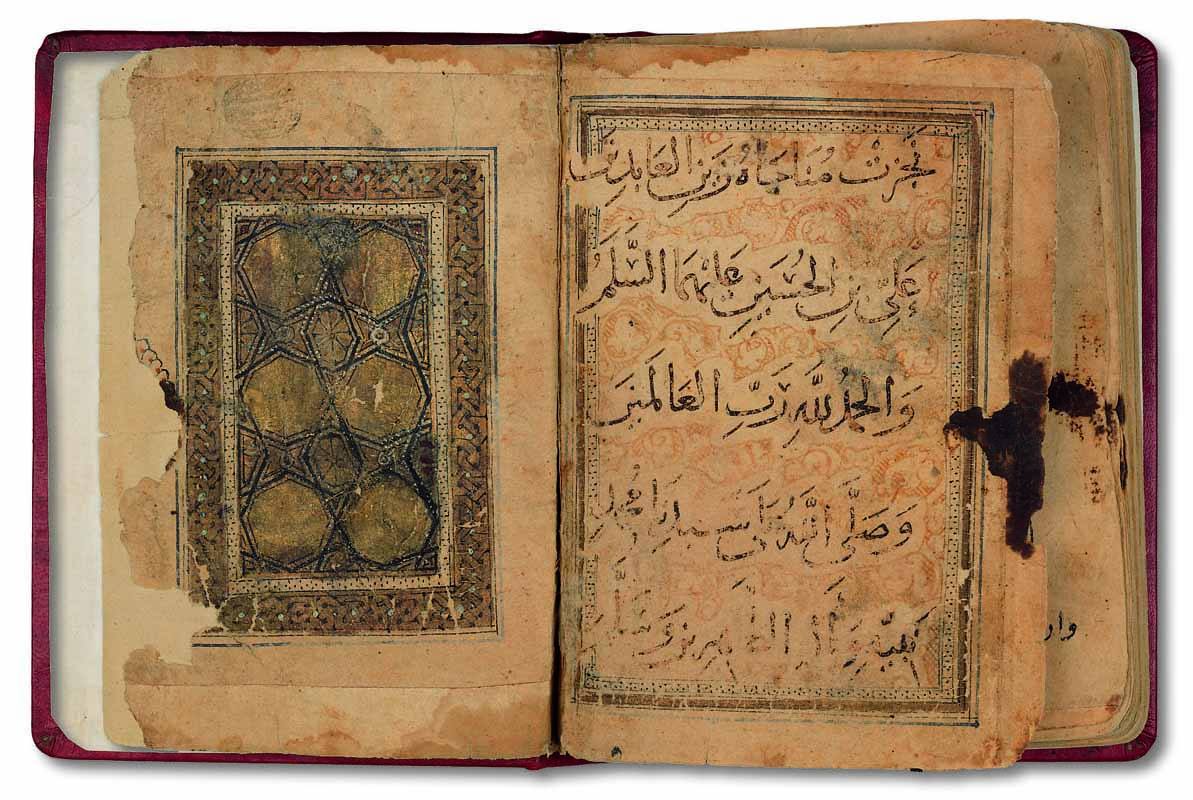 نجزت مناجاة زين العابدين
علي بن الحسين عليهما السلم
والحمد لله رب العالمين
وصلى الله على سيدنا محمد
نبيه وآله الطاهرين وسلم
وار